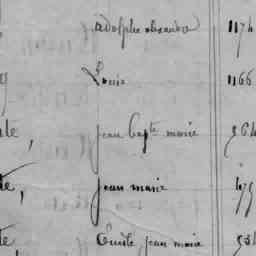 adolphe alexandre 1174
Louis 1166
te, jean bapte marie 964
te, jean marie 479
te Emile jean marie